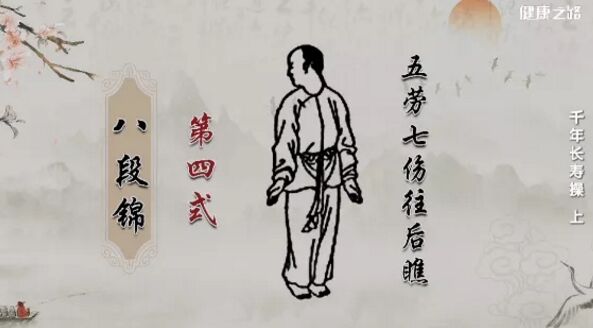 健康之路
八段锦
第四式
五劳七伤往后瞧
千年长寿操 上